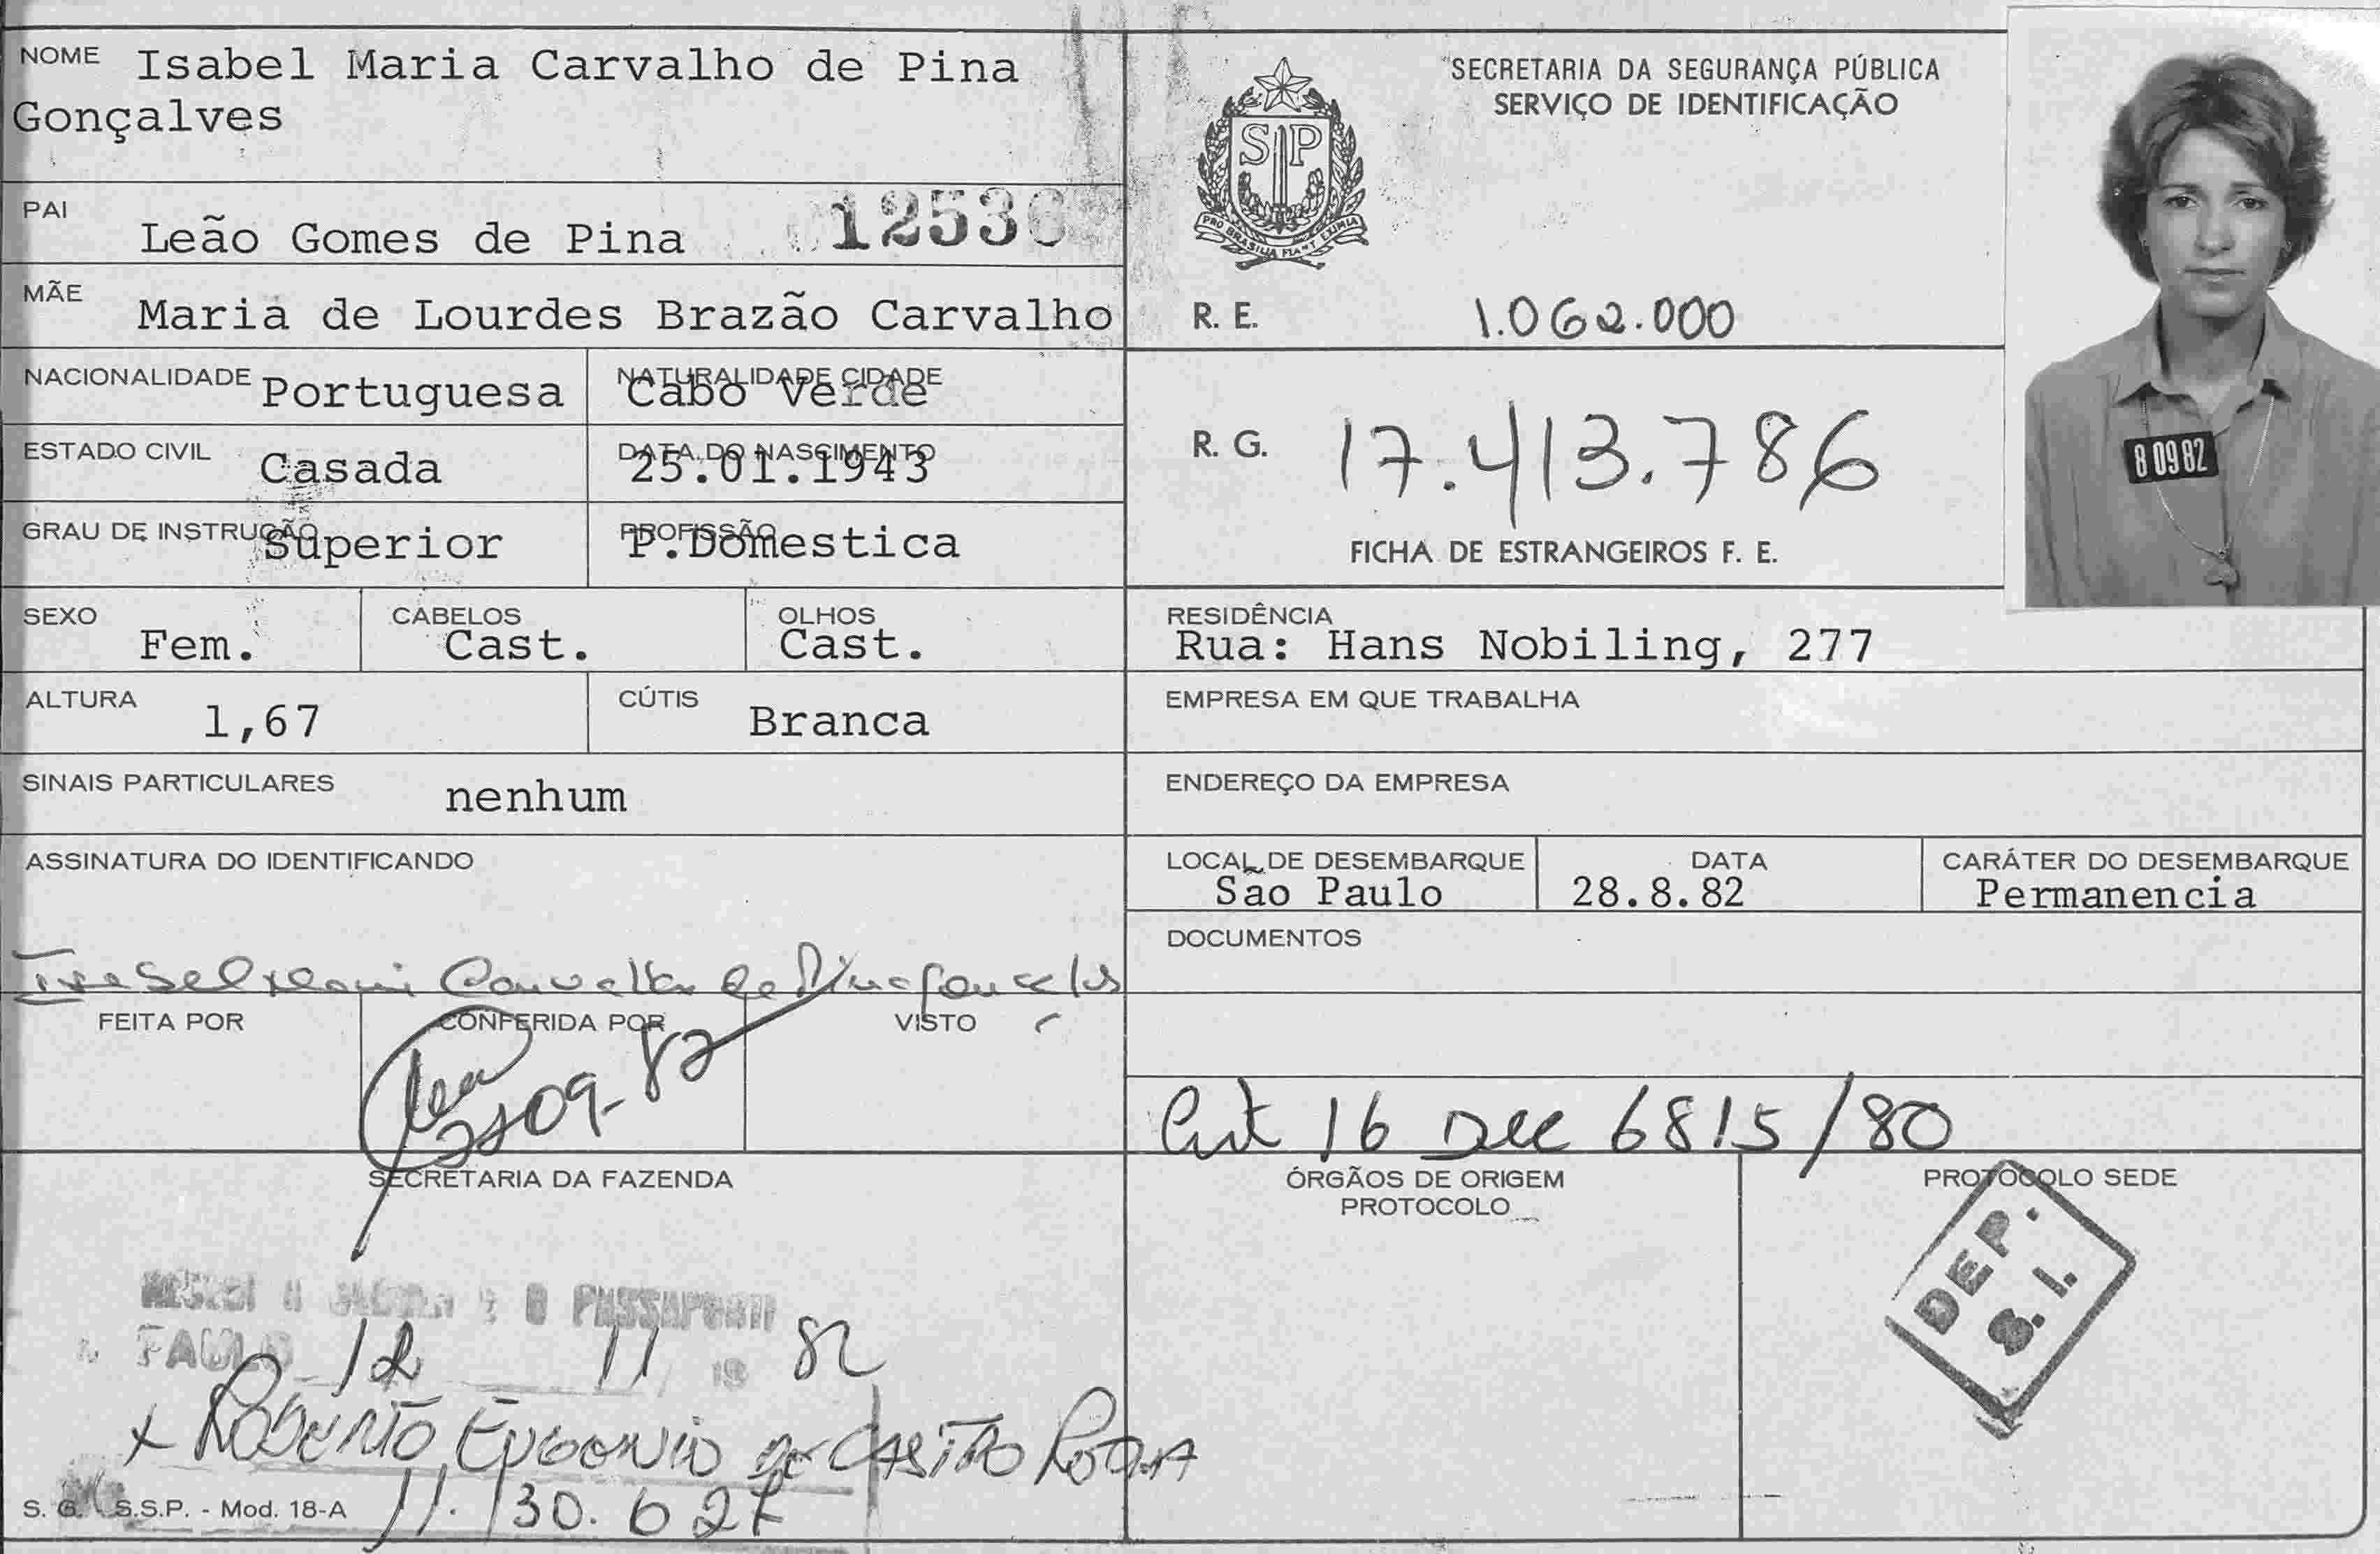 NOME Isabel Maria Carvalho de Pina
Gonçalves
PAI Leão Gomes de Pina 1253
MÃE Maria de Lourdes Brazão Carvalho
NACIONALIDADE Portuguesa NATURALIDADE CIDADE Cabo Verde
ESTADO CIVIL Casada DATA DO NASCIMENTO 25.01.1943
GRAU DE INSTRUÇÃO Superior PROFISSÃO P.Domestica
SEXO Fem. CABELOS Cast. OLHOS Cast.
ALTURA 1,67 CÚTIS Branca
SINAIS PARTICULARES nenhum
ASSINATURA DO IDENTIFICANDO
Isabel Maria Carvalho de Pina Gonçalves
FEITA POR CONFERIDA POR VISTO
09-82
SECRETARIA DA FAZENDA
O PASSAPORTE
PAULO 12 11 19 82
x ROBERTO EUGENIO DE CASTRO ROCHA
11.130.627
S. G. S.S.P. - Mod. 18-A
SECRETARIA DA SEGURANÇA PÚBLICA
SERVIÇO DE IDENTIFICAÇÃO
SP
PRO BRASILIA FIANT EXIMIA
R. E. 1.062.000
R. G. 17.413.786
FICHA DE ESTRANGEIROS F. E.
8 09 82
RESIDÊNCIA
Rua: Hans Nobiling, 277
EMPRESA EM QUE TRABALHA
ENDEREÇO DA EMPRESA
LOCAL DE DESEMBARQUE DATA CARÁTER DO DESEMBARQUE
São Paulo 28.8.82 Permanencia
DOCUMENTOS
Art 16 Dec 6815/80
ÓRGÃOS DE ORIGEM PROTOCOLO SEDE
PROTOCOLO
DEP.
S.I.